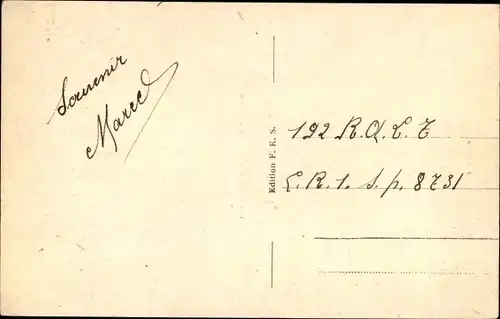 Souvenir
Marcel
Edition F. R. S.
192 R.A.L.T
C.R.1. S.P. 8731